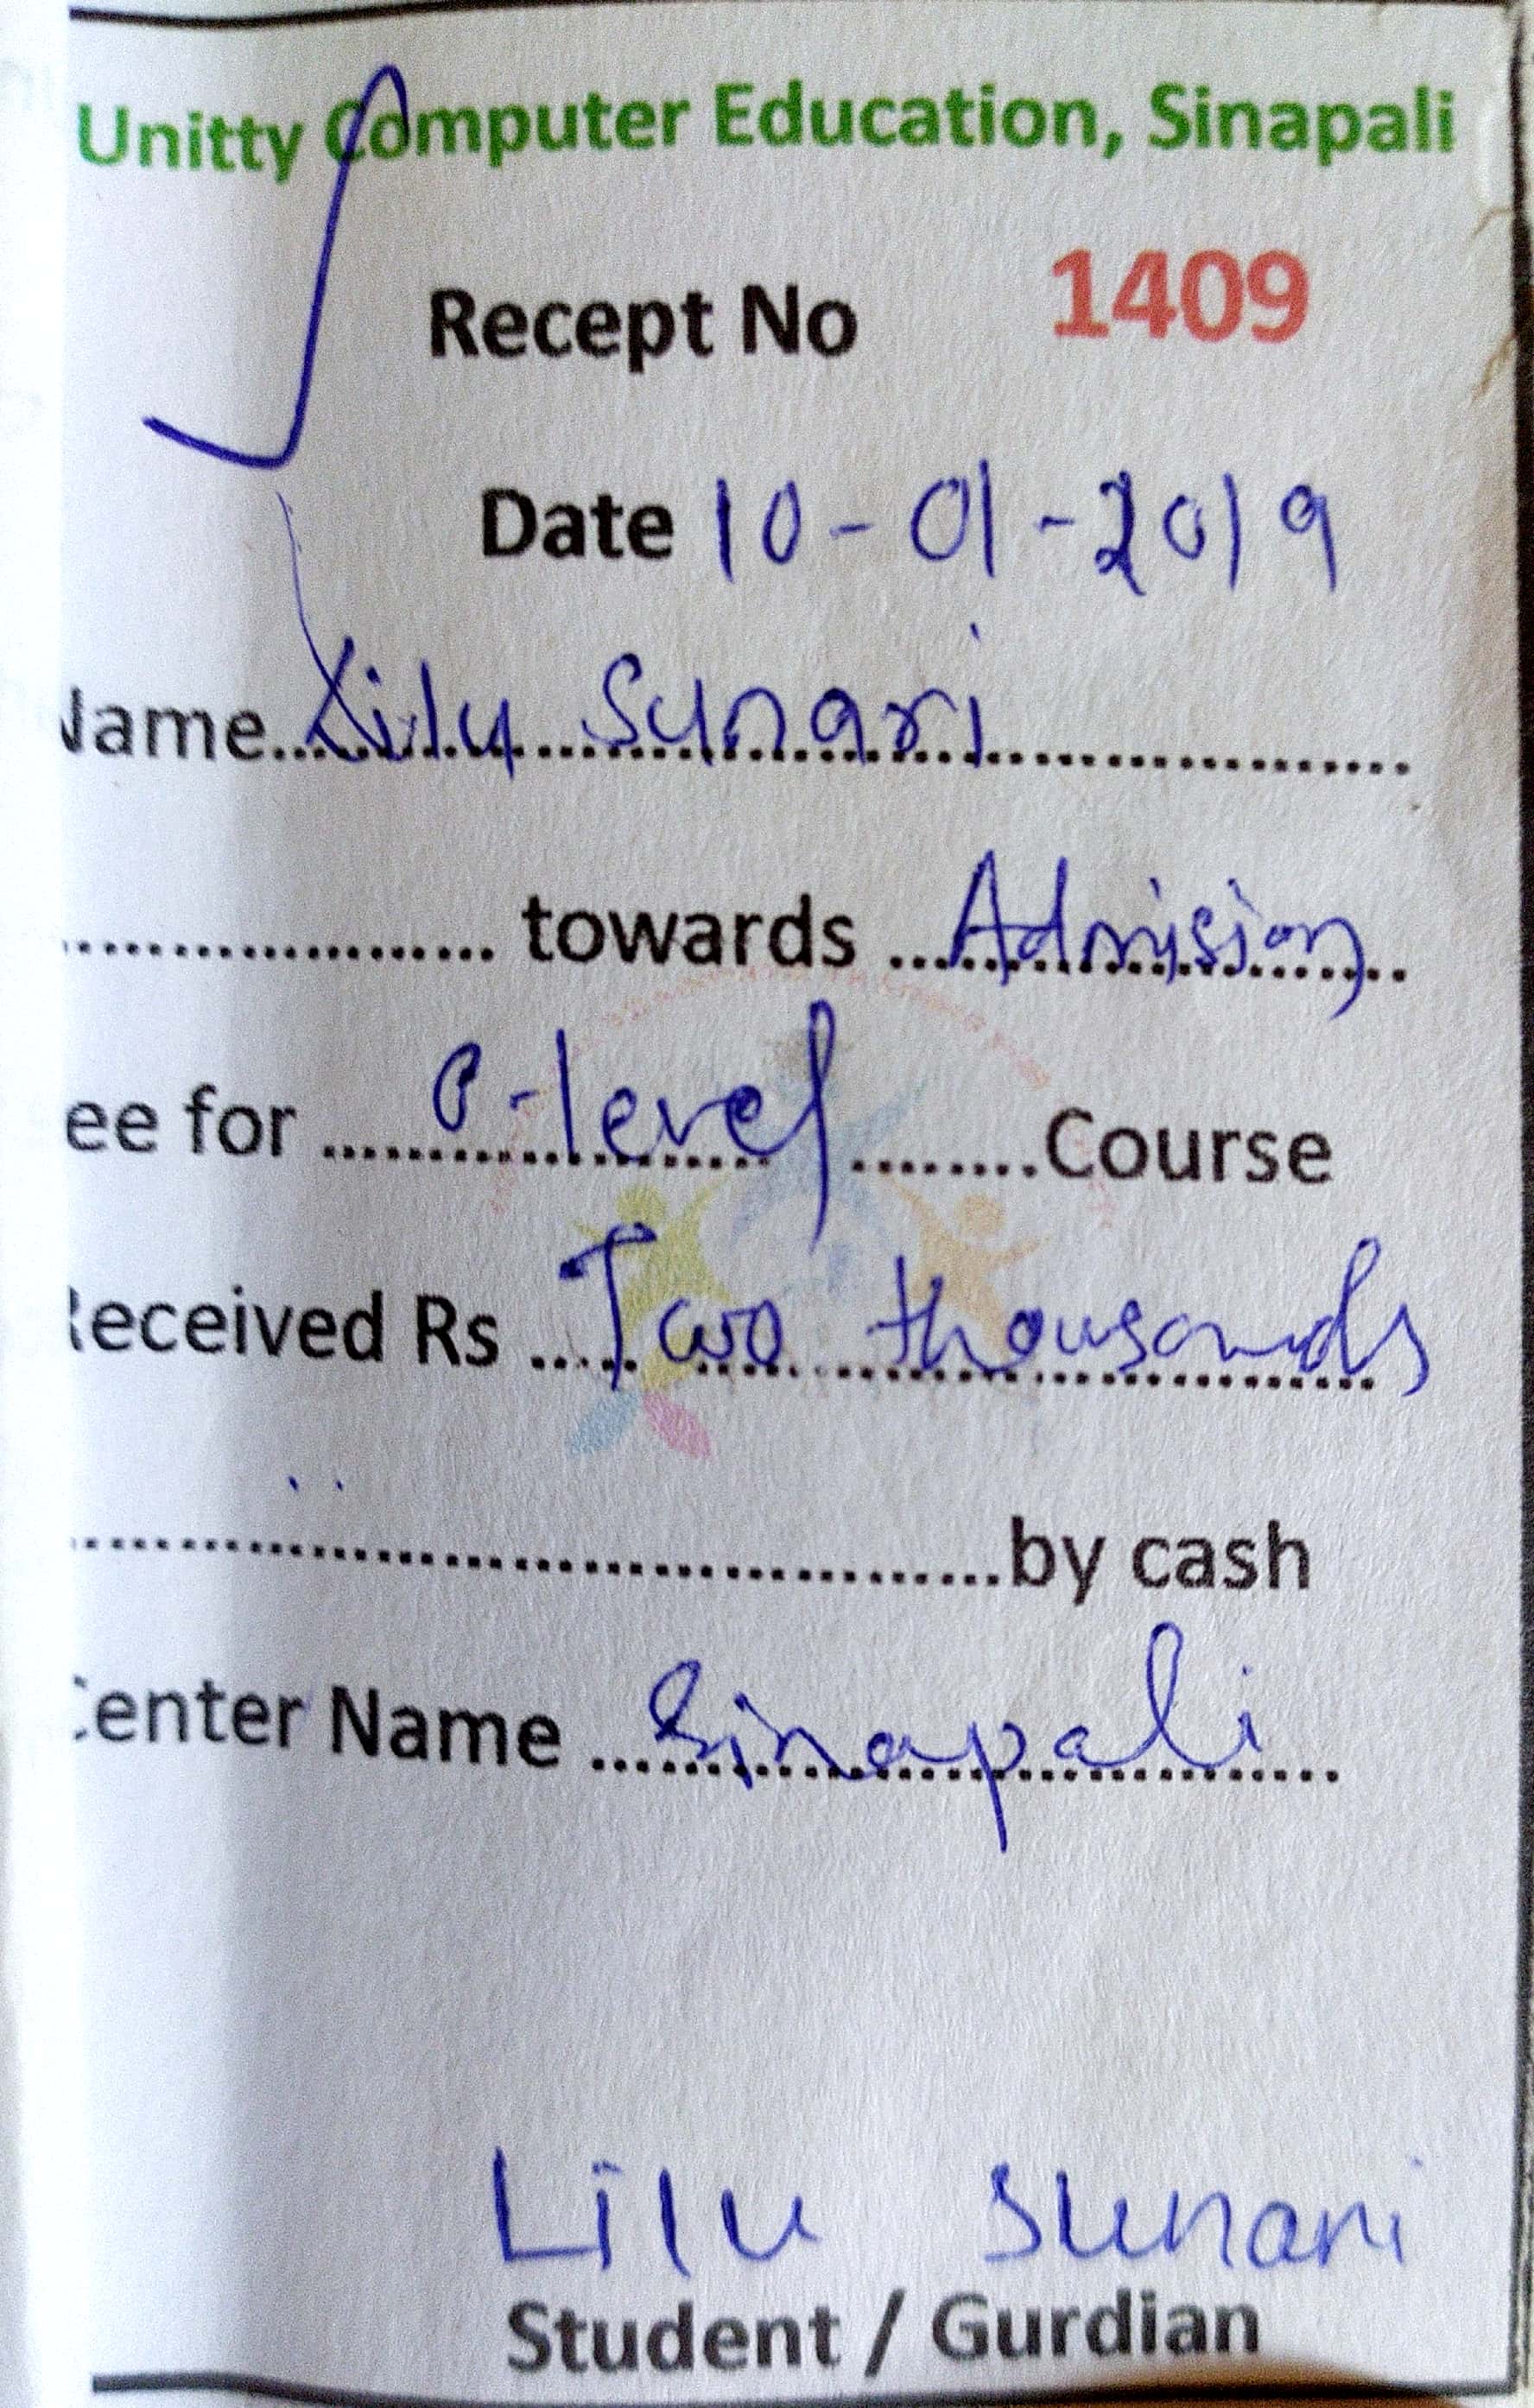 Unitty Computer Education, Sinapali
Recept No 1409
Date 10-01-2019
Name Lilu Sunari
towards Admision
ee for O-level Course
Received Rs Two thousands
by cash
Center Name Sinapali
Lilu Sunari
Student / Gurdian